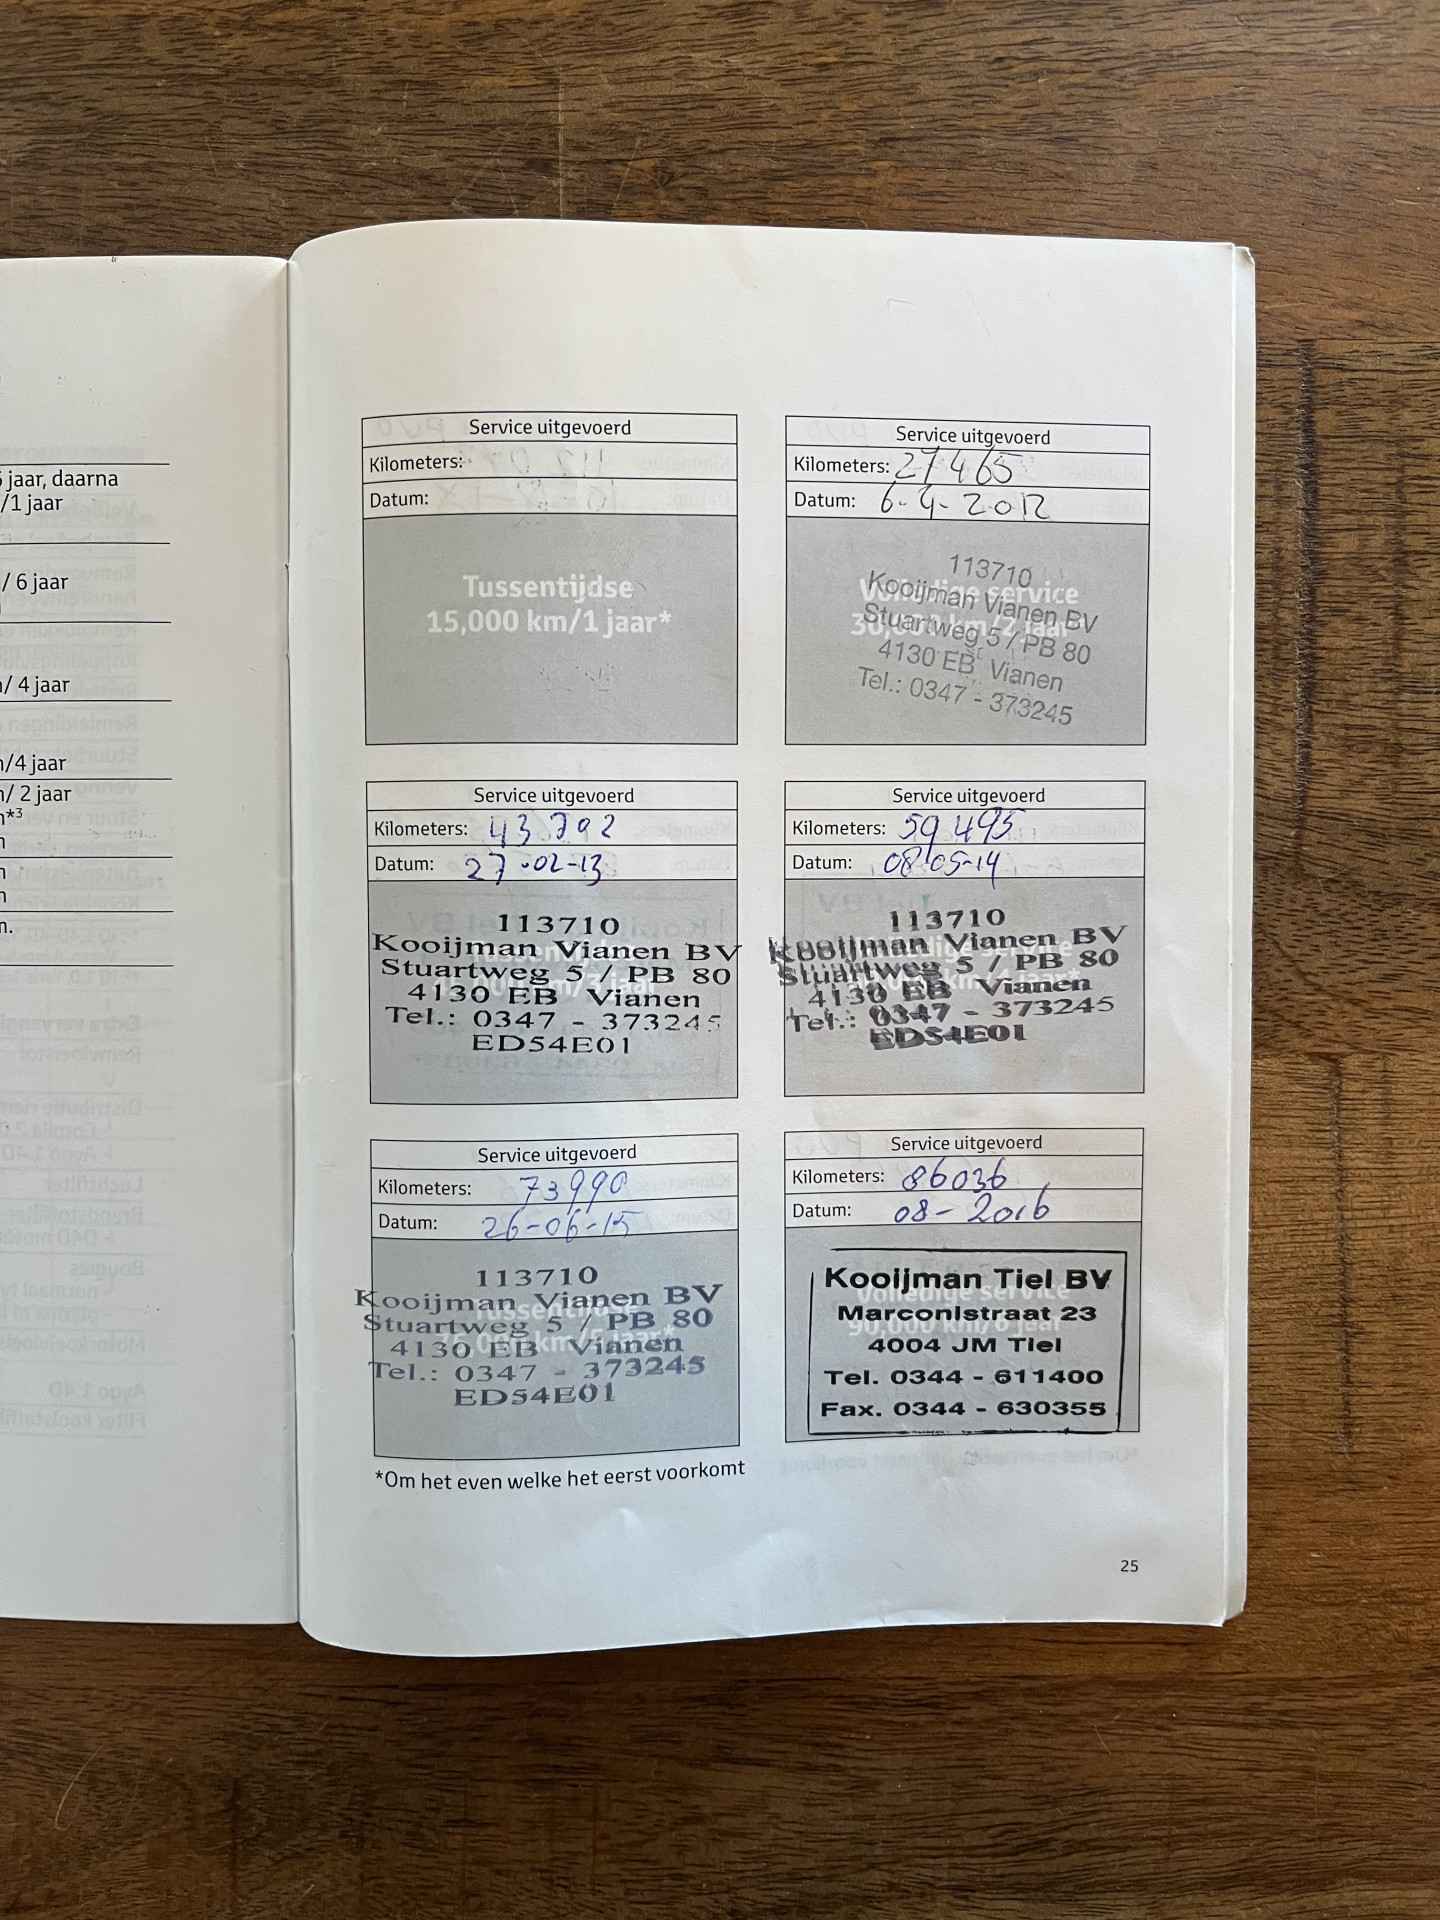 jaar, daarna
/1 jaar
/ 6 jaar
/ 4 jaar
/4 jaar
/ 2 jaar
*3
Service uitgevoerd
Kilometers:
Datum:
Tussentijdse
15,000 km/1 jaar*
Service uitgevoerd
Kilometers: 27465
Datum: 6-4-2012
Volledige service
30,000 km/2 jaar
113710
Kooijman Vianen BV
Stuartweg 5 / PB 80
4130 EB Vianen
Tel.: 0347 - 373245
Service uitgevoerd
Kilometers: 43792
Datum: 27-02-13
113710
Kooijman Vianen BV
Stuartweg 5 / PB 80
4130 EB Vianen
Tel.: 0347 - 373245
ED54E01
Service uitgevoerd
Kilometers: 59495
Datum: 08-05-14
113710
Kooijman Vianen BV
Stuartweg 5 / PB 80
4130 EB Vianen
Tel.: 0347 - 373245
ED54E01
Service uitgevoerd
Kilometers: 73990
Datum: 26-06-15
113710
Kooijman Vianen BV
Stuartweg 5 / PB 80
4130 EB Vianen
Tel.: 0347 - 373245
ED54E01
Service uitgevoerd
Kilometers: 86036
Datum: 08-2016
Volledige service
90,000 km/6 jaar
Kooijman Tiel BV
Marconistraat 23
4004 JM Tiel
Tel. 0344 - 611400
Fax. 0344 - 630355
*Om het even welke het eerst voorkomt
25